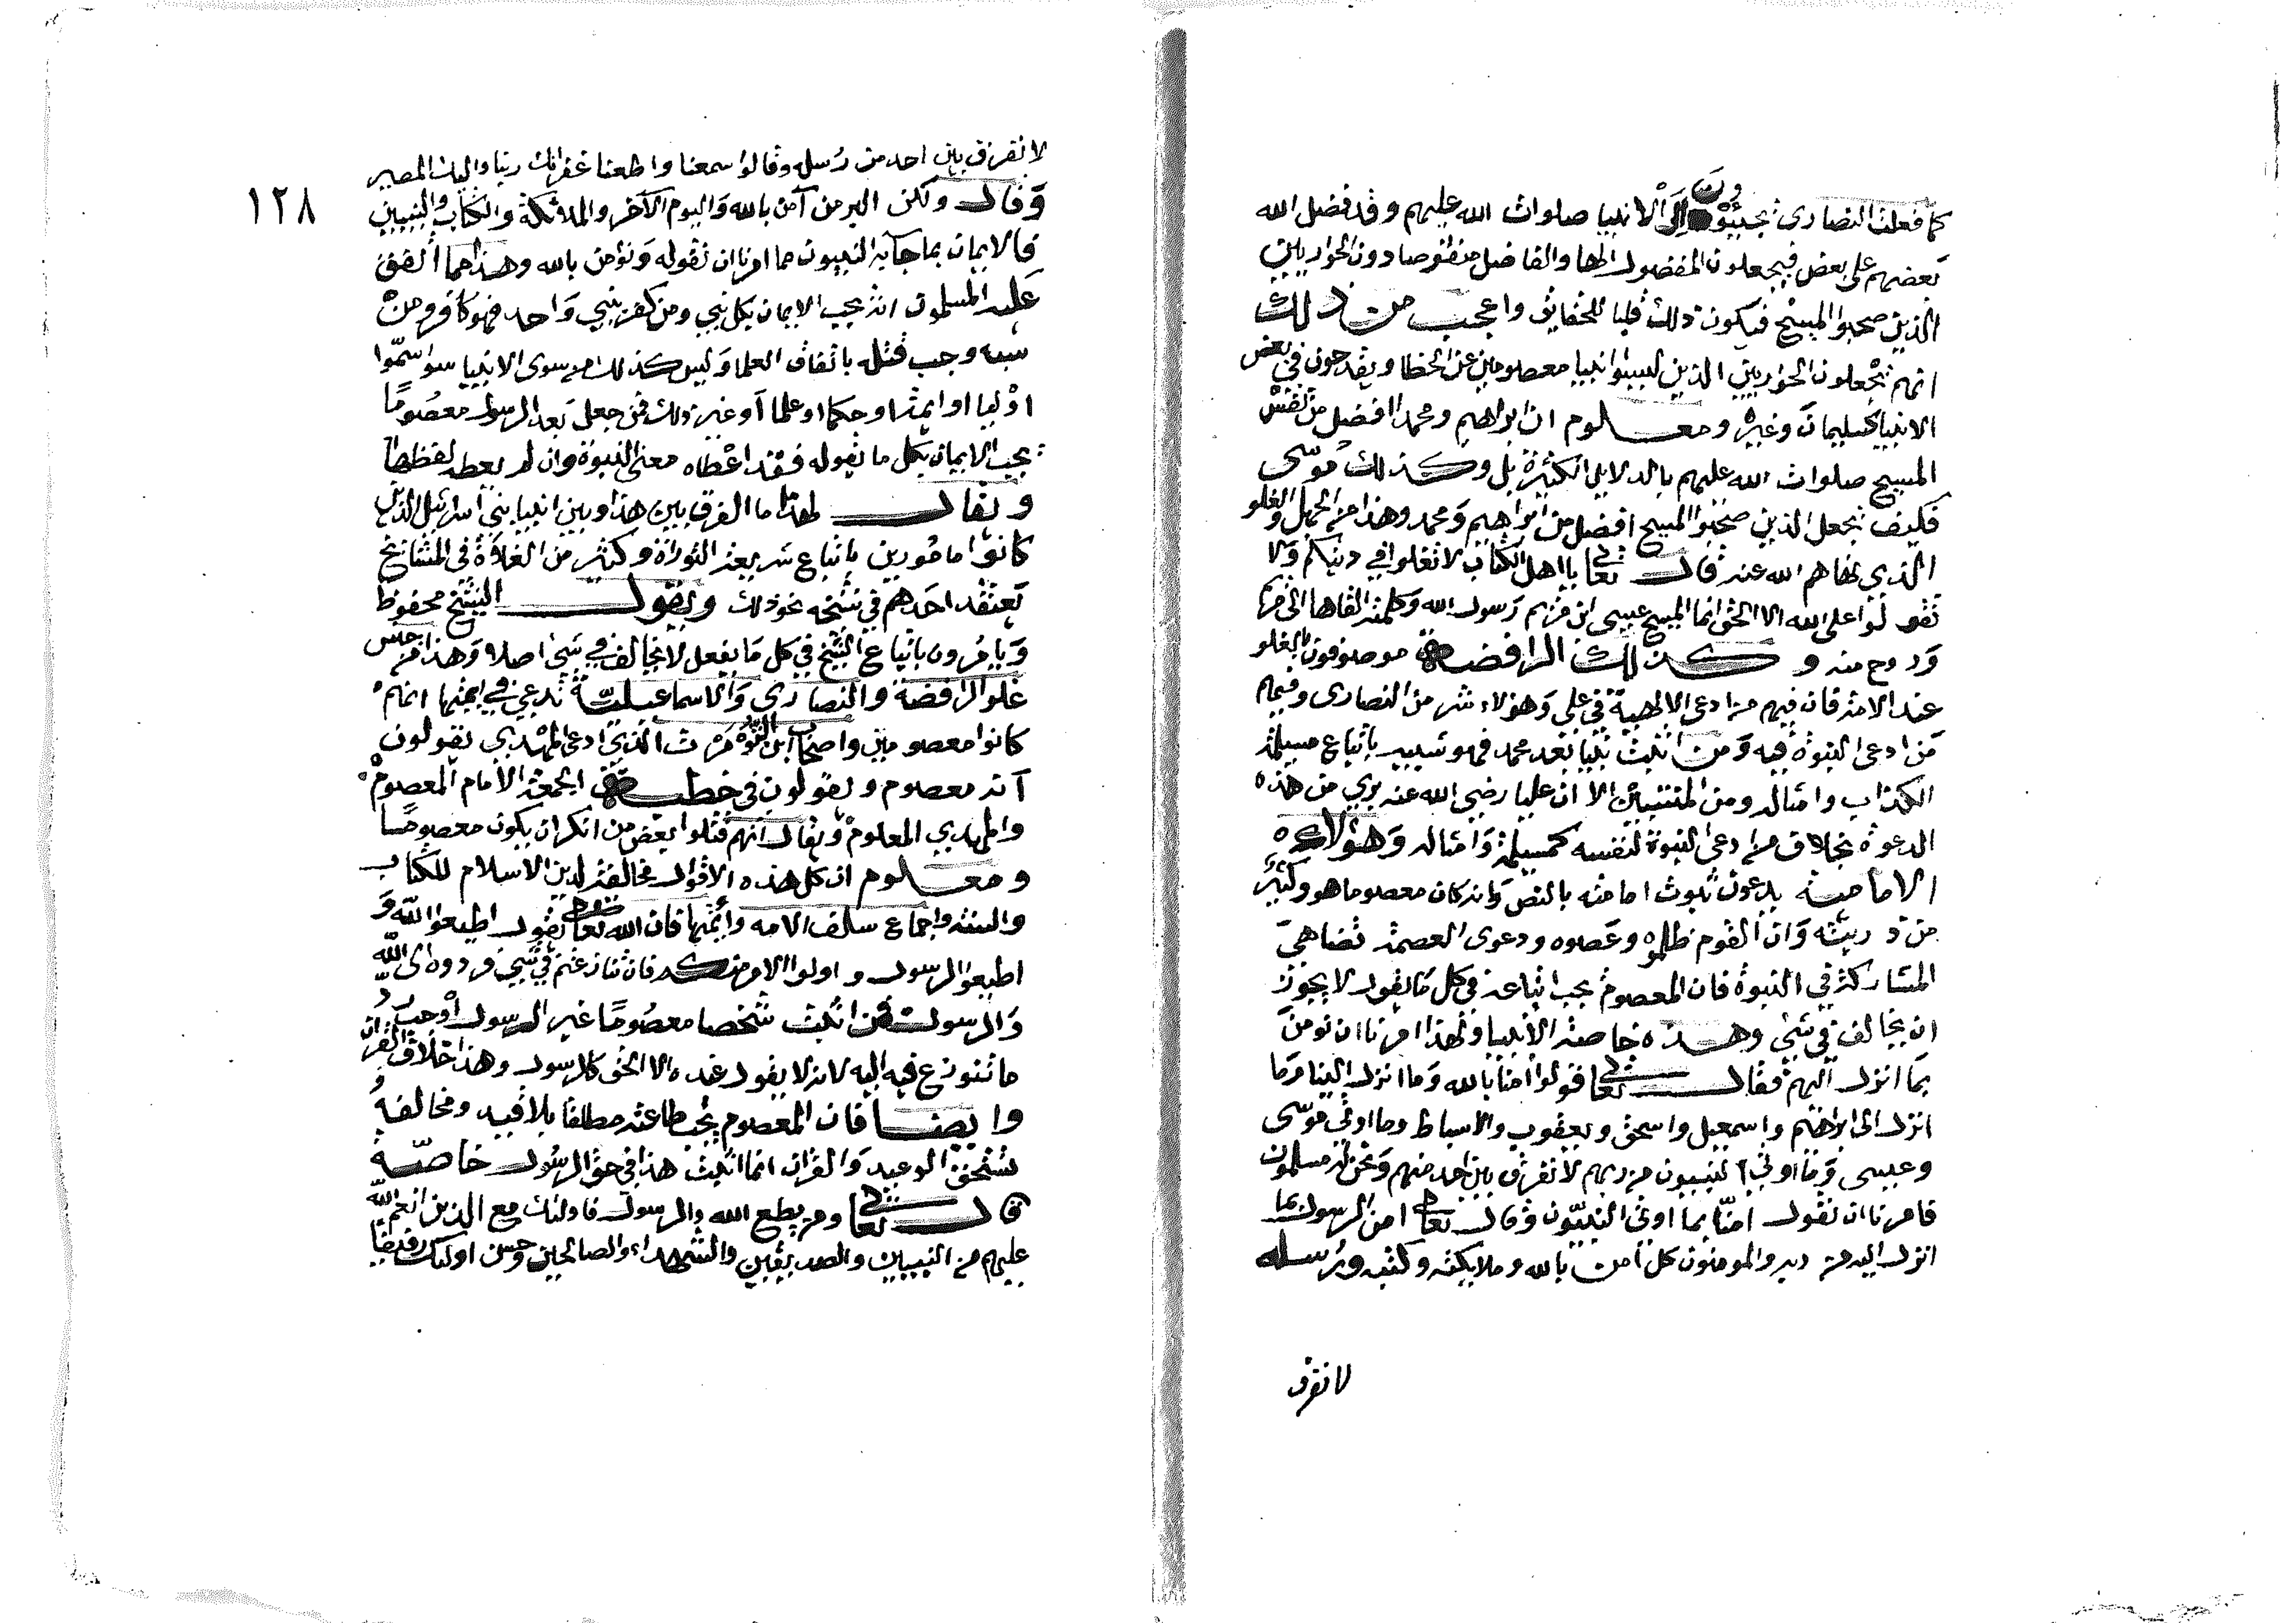 كما فعلت النصارى يجيئون إلى الانبيا صلوات الله عليهم وقد فضل الله
بعضهم على بعض فيجعلون المفضول الها والفاضل منقوصا دون الحواريين
الذين صحبوا المسيح فيكون ذلك قلبا للحقايق واعجب من ذلك
انهم يجعلون الحواريين الذين ليسوا انبيا معصومين عن الخطا ويقدحون في بعض
الانبيا كسليمان وغيره ومعلوم ان ابراهيم ومحمدا افضل من نفس
المسيح صلوات الله عليهم بالدلايل الكثيرة بل وكذلك موسى
فكيف يجعل الذين صحبوا المسيح افضل من ابراهيم ومحمد وهذا من الجهل والغلو
الذي نهاهم الله عنه قال تعالى يا اهل الكتاب لا تغلوا في دينكم ولا
تقولوا على الله الا الحق انما المسيح عيسى ابن مريم رسول الله وكلمته القاها الى مريم
وروح منه وكذلك الرافضة موصوفون بالغلو
عند الامة فان فيهم من ادعى الالهية في علي وهؤلاء شر من النصارى وفيهم
من ادعى النبوة فيه ومن اثبت نبيا بعد محمد فهو شبيه باتباع مسيلمة
الكذاب وامثاله ومن المتنبيين الا ان عليا رضي الله عنه بري من هذه
الدعوة بخلاف من ادعى النبوة لنفسه كمسيلمة وامثاله وهؤلاء
الامامية يدعون ثبوت امامته بالنص وانه كان معصوما هو وكثير
من ذريته وان القوم ظلموه وغصبوه ودعوى العصمة تضاهي
المشاركة في النبوة فان المعصوم يجب اتباعه في كل ما يقول لا يجوز
ان يخالف في شي وهذه خاصة الانبيا ولهذا امرنا ان نومن
بما انزل اليهم فقال تعالى قولوا امنا بالله وما انزل الينا وما
انزل الى ابراهيم واسمعيل واسحق ويعقوب والاسباط وما اوتي موسى
وعيسى وما اوتي النبيون من ربهم لا نفرق بين احد منهم ونحن له مسلمون
فامرنا ان نقول امنا بما اوتي النبيون وقال تعالى امن الرسول بما
انزل اليه من ربه والمومنون كل امن بالله وملايكته وكتبه ورسله
لا نفرق
١٢٨
لا نفرق بين احد من رسله وقالوا سمعنا واطعنا غفرانك ربنا واليك المصير
وقال ولكن البر من آمن بالله واليوم الآخر والملائكة والكتاب والنبيين
فالايمان بما جا به النبيون مما امرنا ان نقوله ونؤمن بالله وهذا مما اتفق
عليه المسلمون انه يجب الايمان بكل نبي ومن كفر بنبي واحد فهو كافر ومن
سبه وجب قتله باتفاق العلما وليس كذلك من سوى الانبيا سوا سموا
اوليا او ايمة او حكما او علما او غير ذلك فمن جعل بعد الرسول معصوما
يجب الايمان بكل ما يقوله فقد اعطاه معنى النبوة وان لم يعطه لفظها
ويقال لهذا ما الفرق بين هذا وبين انبيا بني اسرائيل الذين
كانوا مامورين باتباع شريعة التوراة وكثير من الغلاة في المشايخ
يعتقد احدهم في شيخه نحو ذلك ويقول الشيخ محفوظ
ويامرون باتباع الشيخ في كل ما يفعل لا يخالف في شي اصلا وهذا من جنس
غلو الرافضة والنصارى والاسماعيلية تدعي في ايمتها انهم
كانوا معصومين واصحاب ابن التومرت الذي ادعى المهدي يقولون
انه معصوم ويقولون في خطبة الجمعة الامام المعصوم
والمهدي المعلوم ويقال انهم قتلوا بعض من انكر ان يكون معصوما
ومعلوم ان كل هذه الاقوال مخالفة لدين الاسلام للكتاب
والسنة واجماع سلف الامه وايمتها فان الله تعالى يقول اطيعوا الله و
اطيعوا الرسول واولوا الامر منكم فان تنازعتم في شي فردوه الى الله
والرسول فمن اثبت شخصا معصوما غير الرسول اوجب رد
ما تنوزع فيه اليه لانه لا يقول عنده الا الحق كالرسول وهذا خلاف القران
وايضا فان المعصوم يجب طاعته مطلقا بلا قيد ومخالفه
يستحق الوعيد والقران انما اثبت هذا في حق الرسول خاصة
قال تعالى ومن يطع الله والرسول فاولئك مع الذين انعم الله
عليهم من النبيين والصديقين والشهداء والصالحين وحسن اولئك رفيقا